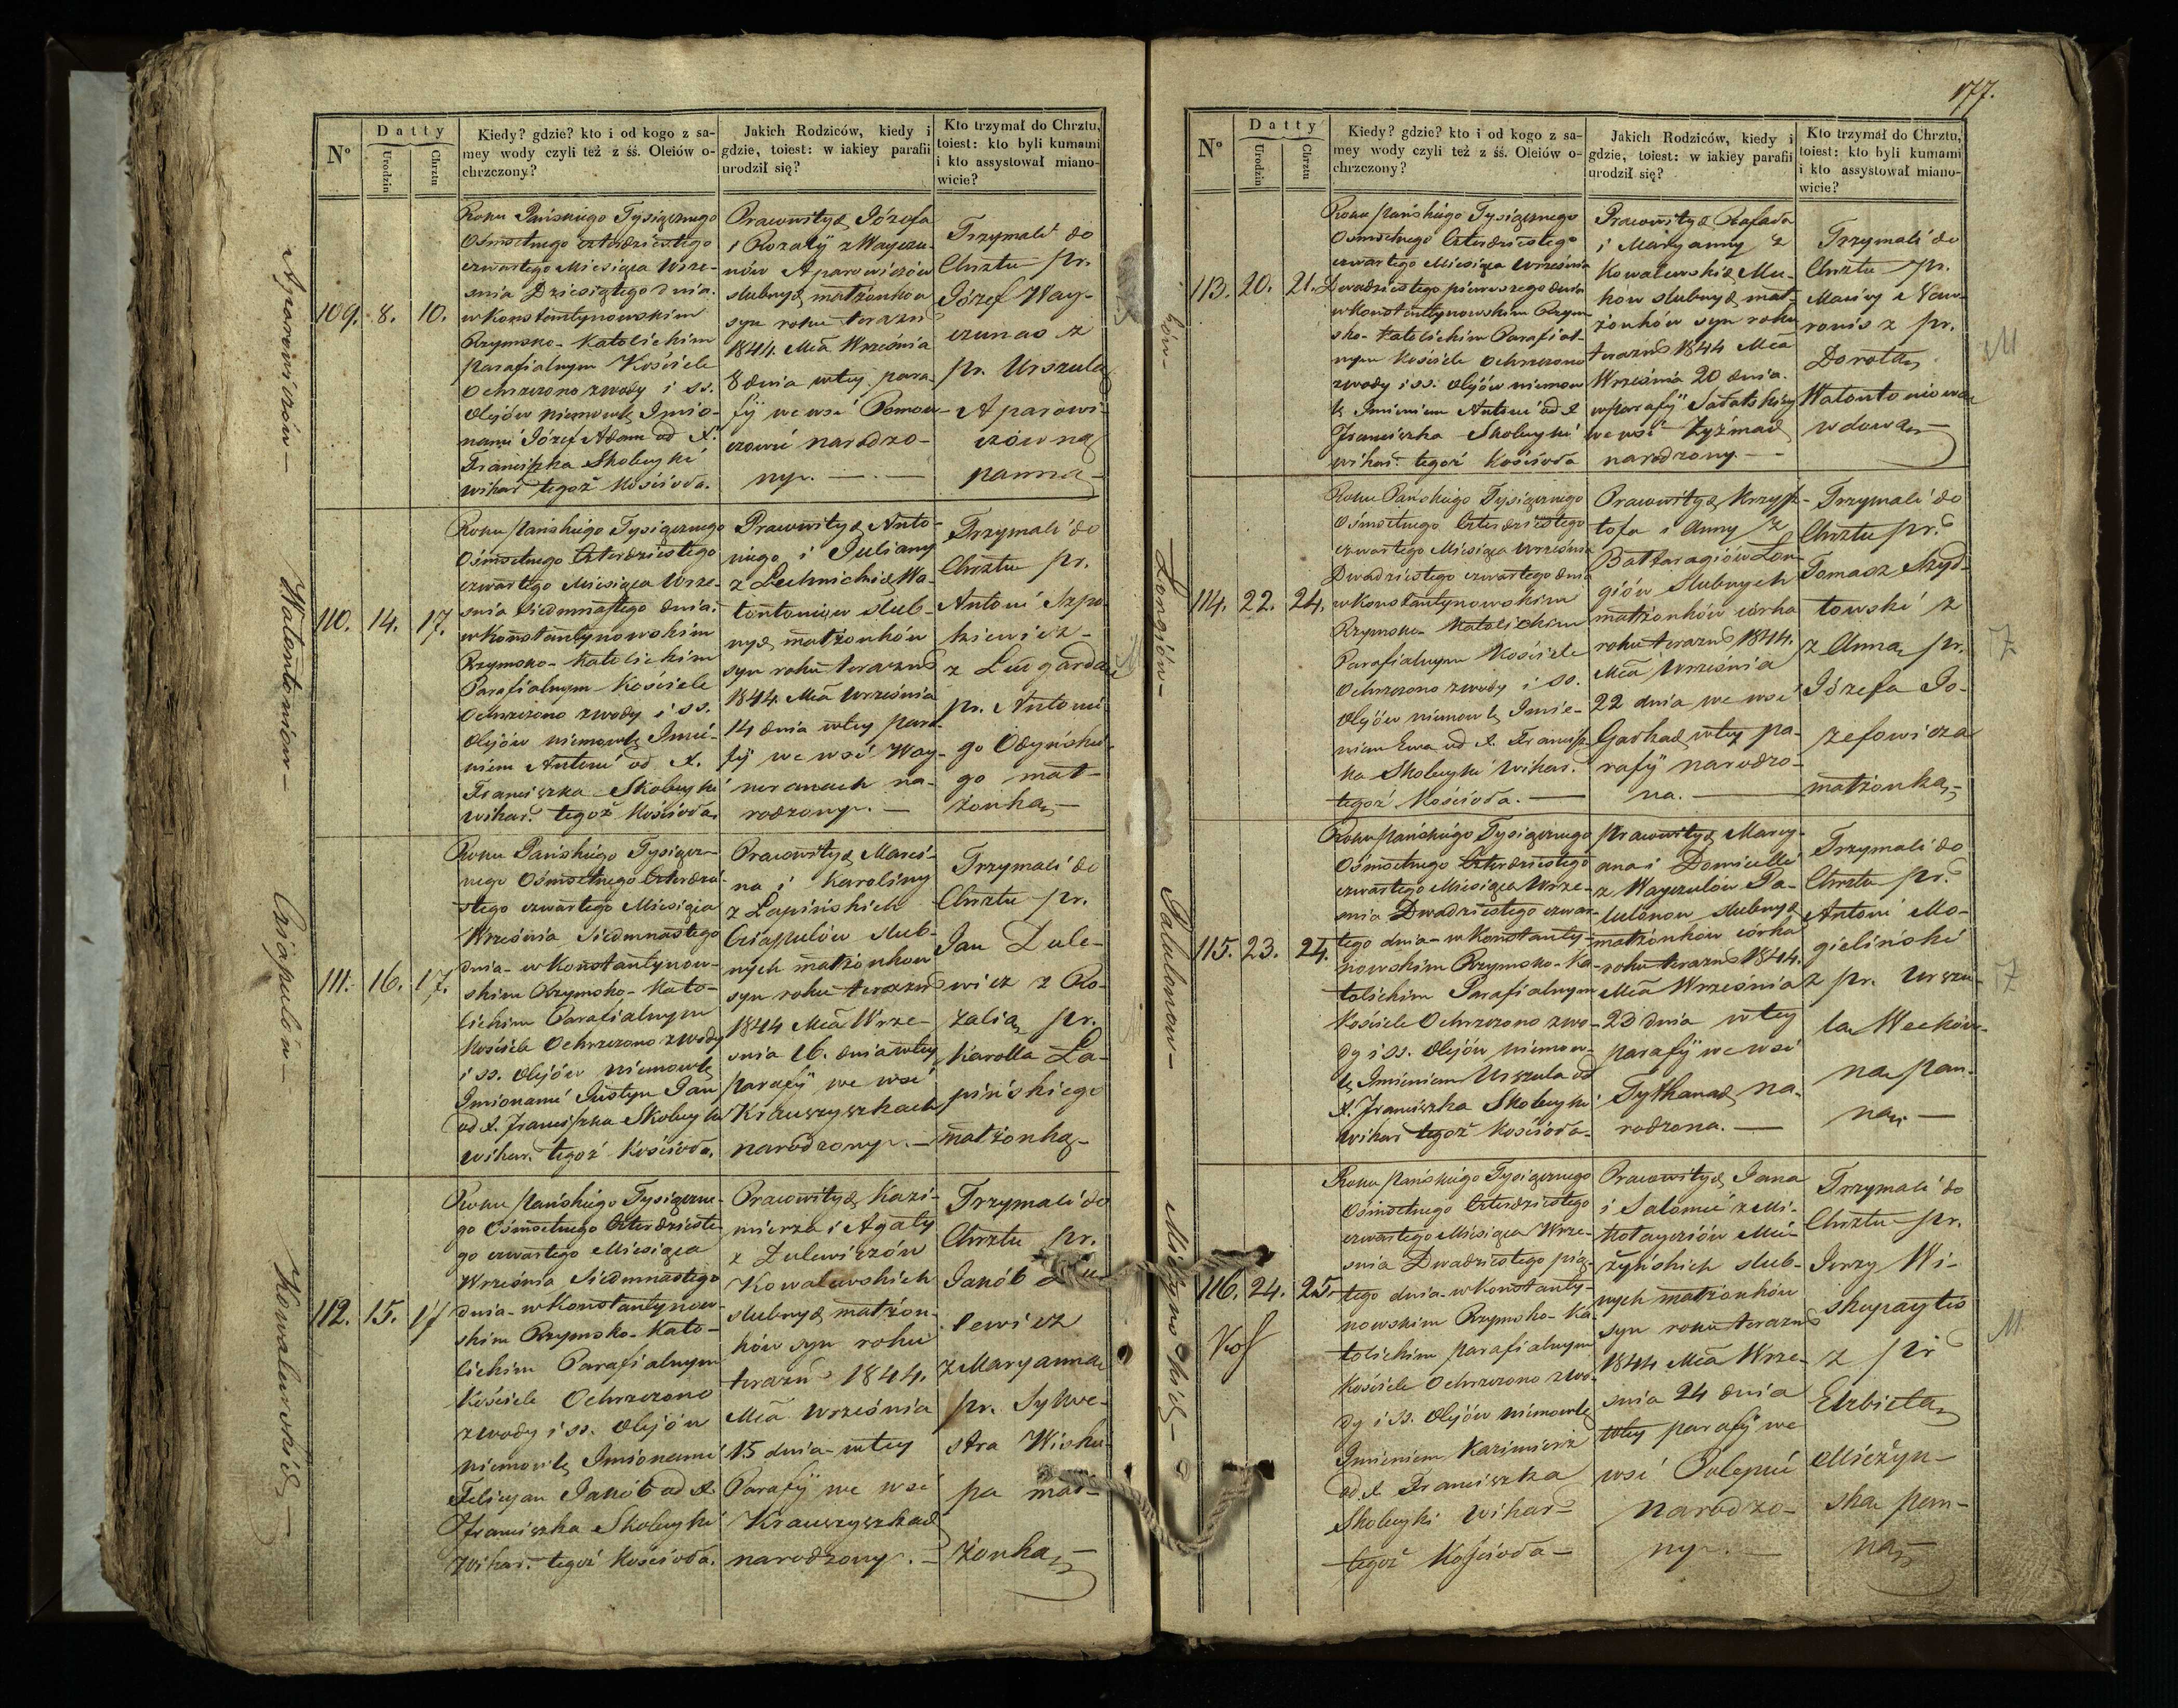 Nº
Datty
Urodzin
Chrztu
Kiedy? gdzie? kto i od kogo z sa-
mey wody czyli też z śś. Oleiów o-
chrzczony?
Jakich Rodziców, kiedy i
gdzie, toiest: w iakiey parafii
urodził się?
Kto trzymał do Chrztu,
toiest: kto byli kumami
i kto assystował miano-
wicie?
Aparowiczów
109. 8. 10.
Roku Pańskiego Tysiącznego
Ośmsetnego czterdziestego
czwartego Miesiąca Wrze-
śnia Dziesiątego dnia
w Konstantynowskim
Rzymsko-Katolickim
parafialnym Kościele
Ochrzczono z wody i ss.
Olejów niemowlę Imio-
nami Józef Adam od X.
Franciszka Skobeyki
wikar. tegoż Kościoła.
Pracowitych Józefa
i Rozalij z Wayczu-
nów Aparowiczów
ślubnych małżonków
syn roku terazn
1844. Mca Września
8 dnia w tey para-
fij we wsi
narodzo-
ny.
Trzymali do
Chrztu pr.
Józef Way-
czunas z
pr. Urszulą
Aparowi-
czówną
panną
Watontoniów
110. 14. 17.
Roku Pańskiego Tysiącznego
Ośmsetnego Czterdziestego
czwartego Miesiąca Wrze-
śnia Siedmnastego dnia
w Konstantynowskim
Rzymsko-Katolickim
Parafialnym Kościele
Ochrzczono z wody i ss.
Olejów niemowlę Imie-
niem Antoni od X.
Franciszka Skobeyki
wikar. tegoż Kościoła
Pracowitych Anto-
niego i Juliany
z Lechnickich Wa-
tontoniów ślub-
nych małżonków
syn roku terazn
1844. Mca Września
14 dnia w tey para-
fij we wsi Way-
na-
rodzony.
Trzymali do
Chrztu pr.
Antoni Szpo-
kiewicz
z Luigardą
pr. Antoni-
go Odyńskie-
go mał-
żonką
Czapulów
111. 16. 17.
Roku Pańskiego Tysiącz-
nego Ośmsetnego Czterdzie-
stego czwartego Miesiąca
Września Siedmnastego
dnia w Konstantynow-
skim Rzymsko-Kato-
lickim Parafialnym
Kościele Ochrzczono z wody
i ss. Olejów niemowlę
Imionami Justyn Jan
od X. Franciszka Skobeyki
wikar. tegoż Kościoła.
Pracowitych Marci-
na i Karoliny
z Łapińskich
Czapulów ślub-
nych małżonków
syn roku terazn
1844 Mca Wrze-
śnia 16. dnia w tey
parafij we wsi
Krauszyszkach
narodzony.
Trzymali do
Chrztu pr.
Jan Zule-
wicz z Ro-
zalią pr.
Karolla Ła-
pińskiego
małżonką
Kowalewskich
112. 15. 17
Roku Pańskiego Tysiączne-
go Ośmsetnego Czterdzieste-
go czwartego Miesiąca
Września Siedmnastego
dnia w Konstantynow-
skim Rzymsko-Kato-
lickim Parafialnym
Kościele Ochrzczono
z wody i ss. Olejów
niemowlę Imionami
Felicyan Jakób od X.
Franciszka Skobeyki
wikar. tegoż Kościoła.
Pracowitych Kazi-
mierza i Agaty
z Zulewiczów
Kowalewskich
ślubnych małżon-
ków syn roku
terazn 1844.
Mca Września
15 dnia w tey
Parafij we wsi
Krauszyszkach
narodzony.
Trzymali do
Chrztu pr.
Jakób Zu-
lewicz
z Maryanną
pr. Sylwe-
stra Wisku-
pa mał-
żonką
177.
Nº
Datty
Urodzin
Chrztu
Kiedy? gdzie? kto i od kogo z sa-
mey wody czyli też z śś. Oleiów o-
chrzczony?
Jakich Rodziców, kiedy i
gdzie, toiest: w iakiey parafii
urodził się?
Kto trzymał do Chrztu,
toiest: kto byli kumami
i kto assystował miano-
wicie?
113. 20. 21.
Roku Pańskiego Tysiącznego
Ośmsetnego Czterdziestego
czwartego Miesiąca Września
Dwadziestego pierwszego dnia
w Konstantynowskim Rzym-
sko-Katolickim Parafial-
nym Kościele Ochrzczono
z wody i ss. Olejów niemow-
lę Imieniem Antoni od X
Franciszka Skobeyki
wikar. tegoż Kościoła
Pracowitych Rafała
i Maryanny z
Kowalewskich Mu-
ków ślubnych mał-
żonków syn roku
terazn 1844 Mca
Września 20 dnia
w parafij
we wsi Zyzmach
narodzony.
Trzymali do
Chrztu pr.
z pr.
Dorotą
Watontoniową
wdową
M
Longiów
114. 22. 24.
Roku Pańskiego Tysiącznego
Ośmsetnego Czterdziestego
czwartego Miesiąca Września
Dwadziestego czwartego dnia
w Konstantynowskim
Rzymsko-Katolickim
Parafialnym Kościele
Ochrzczono z wody i ss.
Olejów niemowlę Imie-
niem Ewa od X. Francisz-
ka Skobeyki wikar.
tegoż Kościoła.
Pracowitych Krzysz-
tofa i Anny z
Bałtaragiów Lon-
giów ślubnych
małżonków córka
roku terazn 1844.
Mca Września
22 dnia we wsi
w tey pa-
rafij narodzo-
na.
Trzymali do
Chrztu pr.
Tomasz Szyd-
łowski z
z Anną pr.
Józefa Jo-
zefowicza
małżonką
Ż
Palulonow
115. 23. 24.
Roku Pańskiego Tysiącznego
Ośmsetnego Czterdziestego
czwartego Miesiąca Wrze-
śnia Dwadziestego czwar-
tego dnia w Konstanty-
nowskim Rzymsko-Ka-
tolickim Parafialnym
Kościele Ochrzczono z wo-
dy i ss. Olejów niemow-
lę Imieniem Urszula od
X. Franciszka Skobeyki
wikar tegoż Kościoła
Pracowitych Marcy-
ana i Domicelli
z Wayczulów Pa-
lulonow ślubnych
małżonków córka
roku terazn 1844.
Mca Września
23 dnia w tey
parafij we wsi
Tytkanach na-
rodzona.
Trzymali do
Chrztu pr.
Antoni Mo-
gieliński
z pr. Urszu-
lą
ną pan-
ną
Ż
116. 24. 25.
Roku Pańskiego Tysiącznego
Ośmsetnego Czterdziestego
czwartego Miesiąca Wrze-
śnia Dwadziestego pią-
tego dnia w Konstanty-
nowskim Rzymsko-Ka-
tolickim parafialnym
Kościele Ochrzczono z wo-
dy i ss. Olejów niemowlę
Imieniem Kazimierz
od X. Franciszka
Skobeyki wikar
tegoż Kościoła
Pracowitych Jana
i Salomei z Mi-
kołayciów Mie-
żyńskich ślub-
nych małżonków
syn roku terazn
1844 Mca Wrze-
śnia 24 dnia
w tey parafij we
wsi
narodzo-
ny.
Trzymali do
Chrztu pr.
Jerzy Wi-
skupaytis
z pr
Elżbietą
Mieżyn-
ską pan-
ną
M